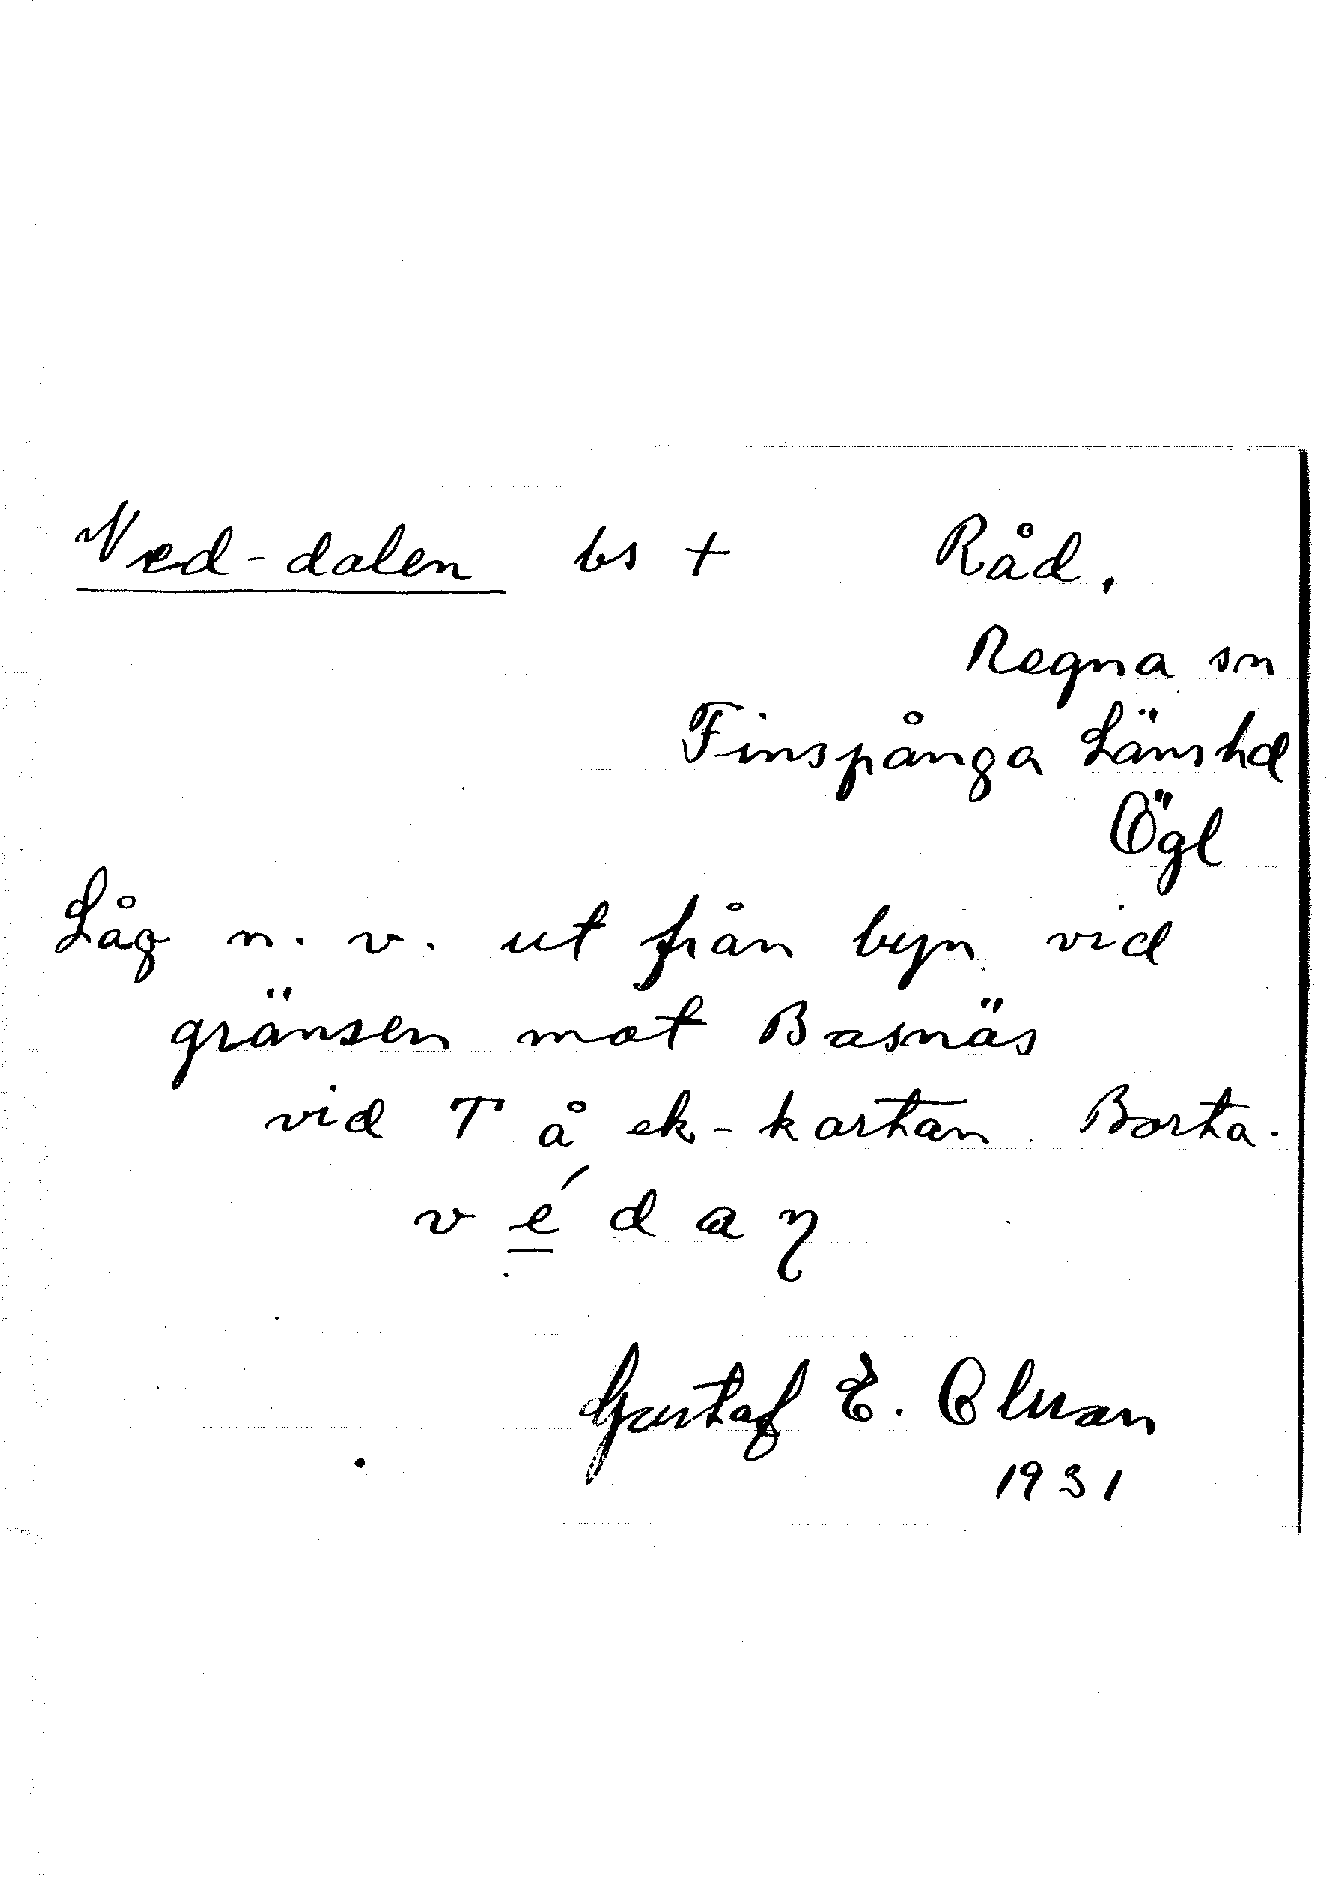 Ved-dalen bs + Råd.
Regna sn
Finspånga Länshd
Ögl
Låg n. v. ut från byn vid
gränsen mot Basnäs
vid T å ek-kartan. Borta.
v é d a ŋ
Gustaf E.
1931